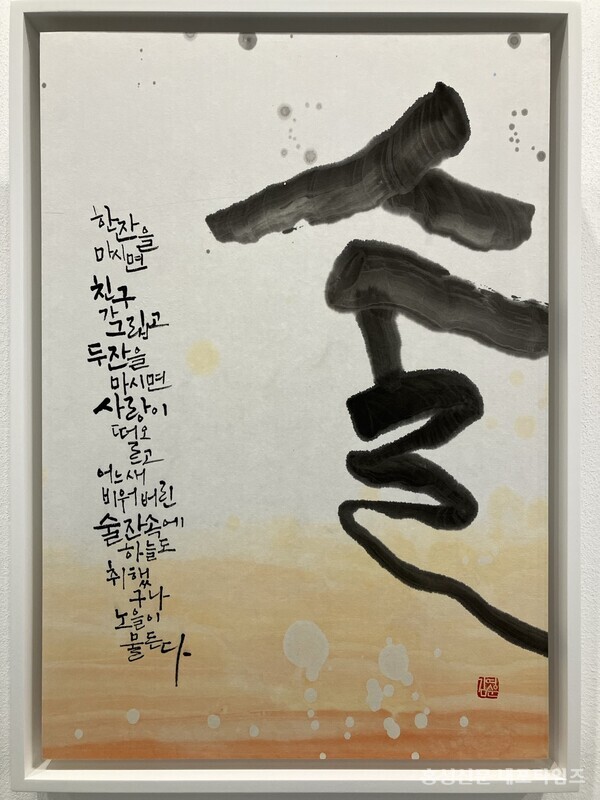 술
한잔을
마시면
친구
가
그립고
두잔을
마시면
사랑이
떠오
르고
어느새
비워버린
술잔속에
하늘도
취했
구나
노을이
물든다
홍성신문 내포타임즈